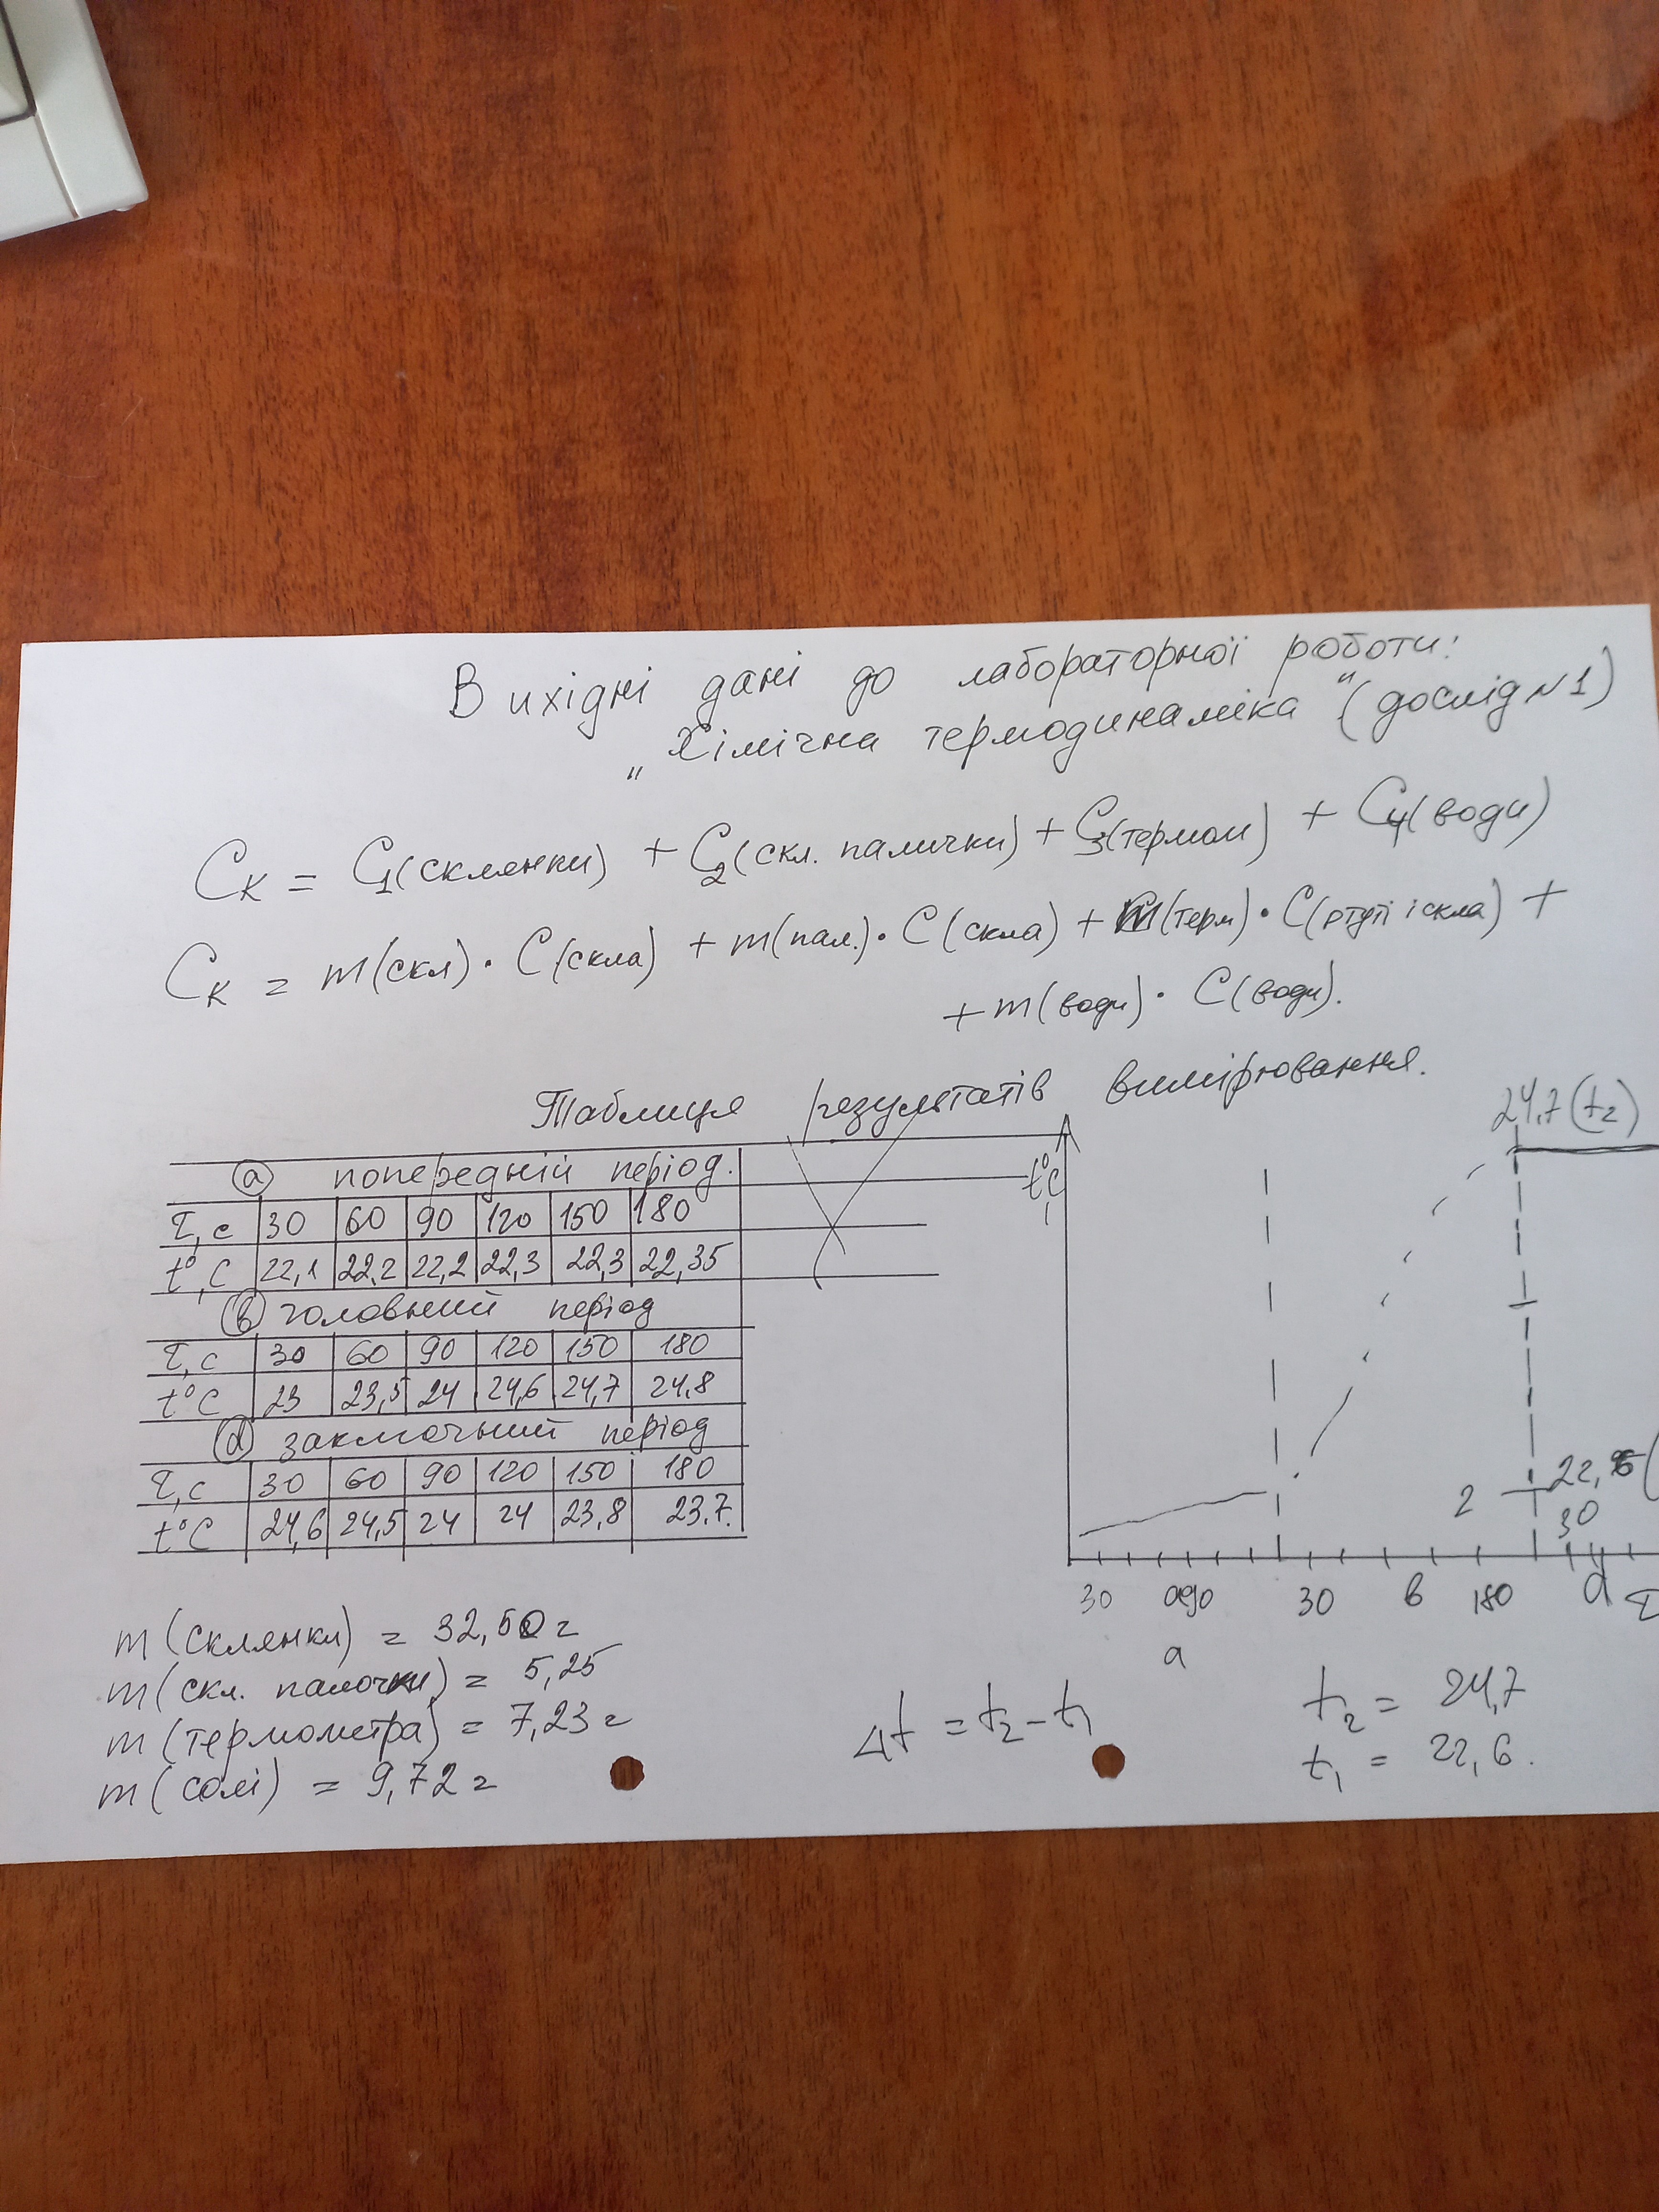 Вихідні дані до лабораторної роботи:
„Хімічна термодинаміка" (дослід №1)
Cк = C1(склянки) + C2(скл. палички) + C3(термом) + C4(води)
Cк = m(скл) · C(скла) + m(пал.) · C(скла) + m(терм) · C(ртуті і скла) +
+ m(води) · C(води).
Таблиця результатів вимірювання.
(a) попередній період.
τ, c 30 60 90 120 150 180
t°, C 22,1 22,2 22,2 22,3 22,3 22,35
(b) головний період
τ, c 30 60 90 120 150 180
t°C 23 23,5 24 24,6 24,7 24,8
(d) заключний період
τ, c 30 60 90 120 150 180
t°C 24,6 24,5 24 24 23,8 23.7.
t°C
24,7 (t2)
2
22,6 (
30
30 90 30 в 180 d τ
a
m (склянки) = 32,50 г
m (скл. палочки) = 5,25
m (термометра) = 7,23 г
m (солі) = 9,72 г
Δt = t2 - t1
t2 = 24,7
t1 = 22,6.